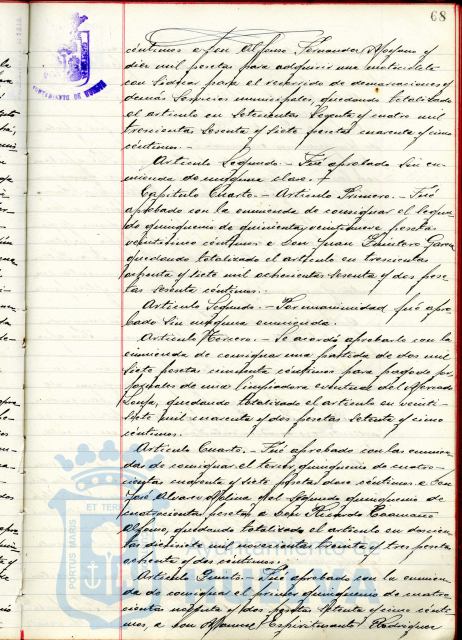 68
céntimos a Don Alfonso Fernandez y
diez mil pesetas para adquirir una motocicleta
con sidecar para el recorrido de demarcaciones y
demás servicios municipales, quedando totalizado
el artículo en setecientas setenta y cuatro mil
trescientas sesenta y siete pesetas cuarenta y cinco
céntimos.-
Artículo Segundo.- Fué aprobado sin en-
mienda de ninguna clase.
Capítulo Cuarto.- Artículo Primero.- Fué
aprobado con la enmienda de consignar el segun-
do quinquenio de quinientas veintinueve pesetas
veinticinco céntimos a Don Juan García
quedando totalizado el artículo en trescientas
y siete mil ochocientas sesenta y dos pese-
tas sesenta céntimos.-
Artículo Segundo.- Por unanimidad fué apro-
bado sin ninguna enmienda.
Artículo Tercero.- Se acordó aprobarlo con la
enmienda de consignar una partida de dos mil
siete pesetas cincuenta céntimos para pago de jor-
nales de una limpiadora eventual del Mercado
Lonja, quedando totalizado el artículo en veinti-
siete mil cuarenta y dos pesetas setenta y cinco
céntimos.
Artículo Cuarto.- Fué aprobado con las enmien-
das de consignar el tercer quinquenio de cuatro-
cientas cuarenta y siete pesetas doce céntimos a Don
José Alvarez Molina y el segundo quinquenio de
cuatrocientas pesetas a Don Ricardo Caamaño
Alfaro, quedando totalizado el artículo en doscien-
tas y tres pesetas
y dos céntimos.-
Artículo Quinto.- Fué aprobado con la enmien-
da de consignar el primer quinquenio de cuatro-
cientas noventa y dos pesetas setenta y cinco cénti-
mos, a Don Manuel Espiritusanto Rodriguez
AYUNTAMIENTO DE HUELVA
PORTUS MARIS ET TERRAE
Ayuntamiento de
HUELVA